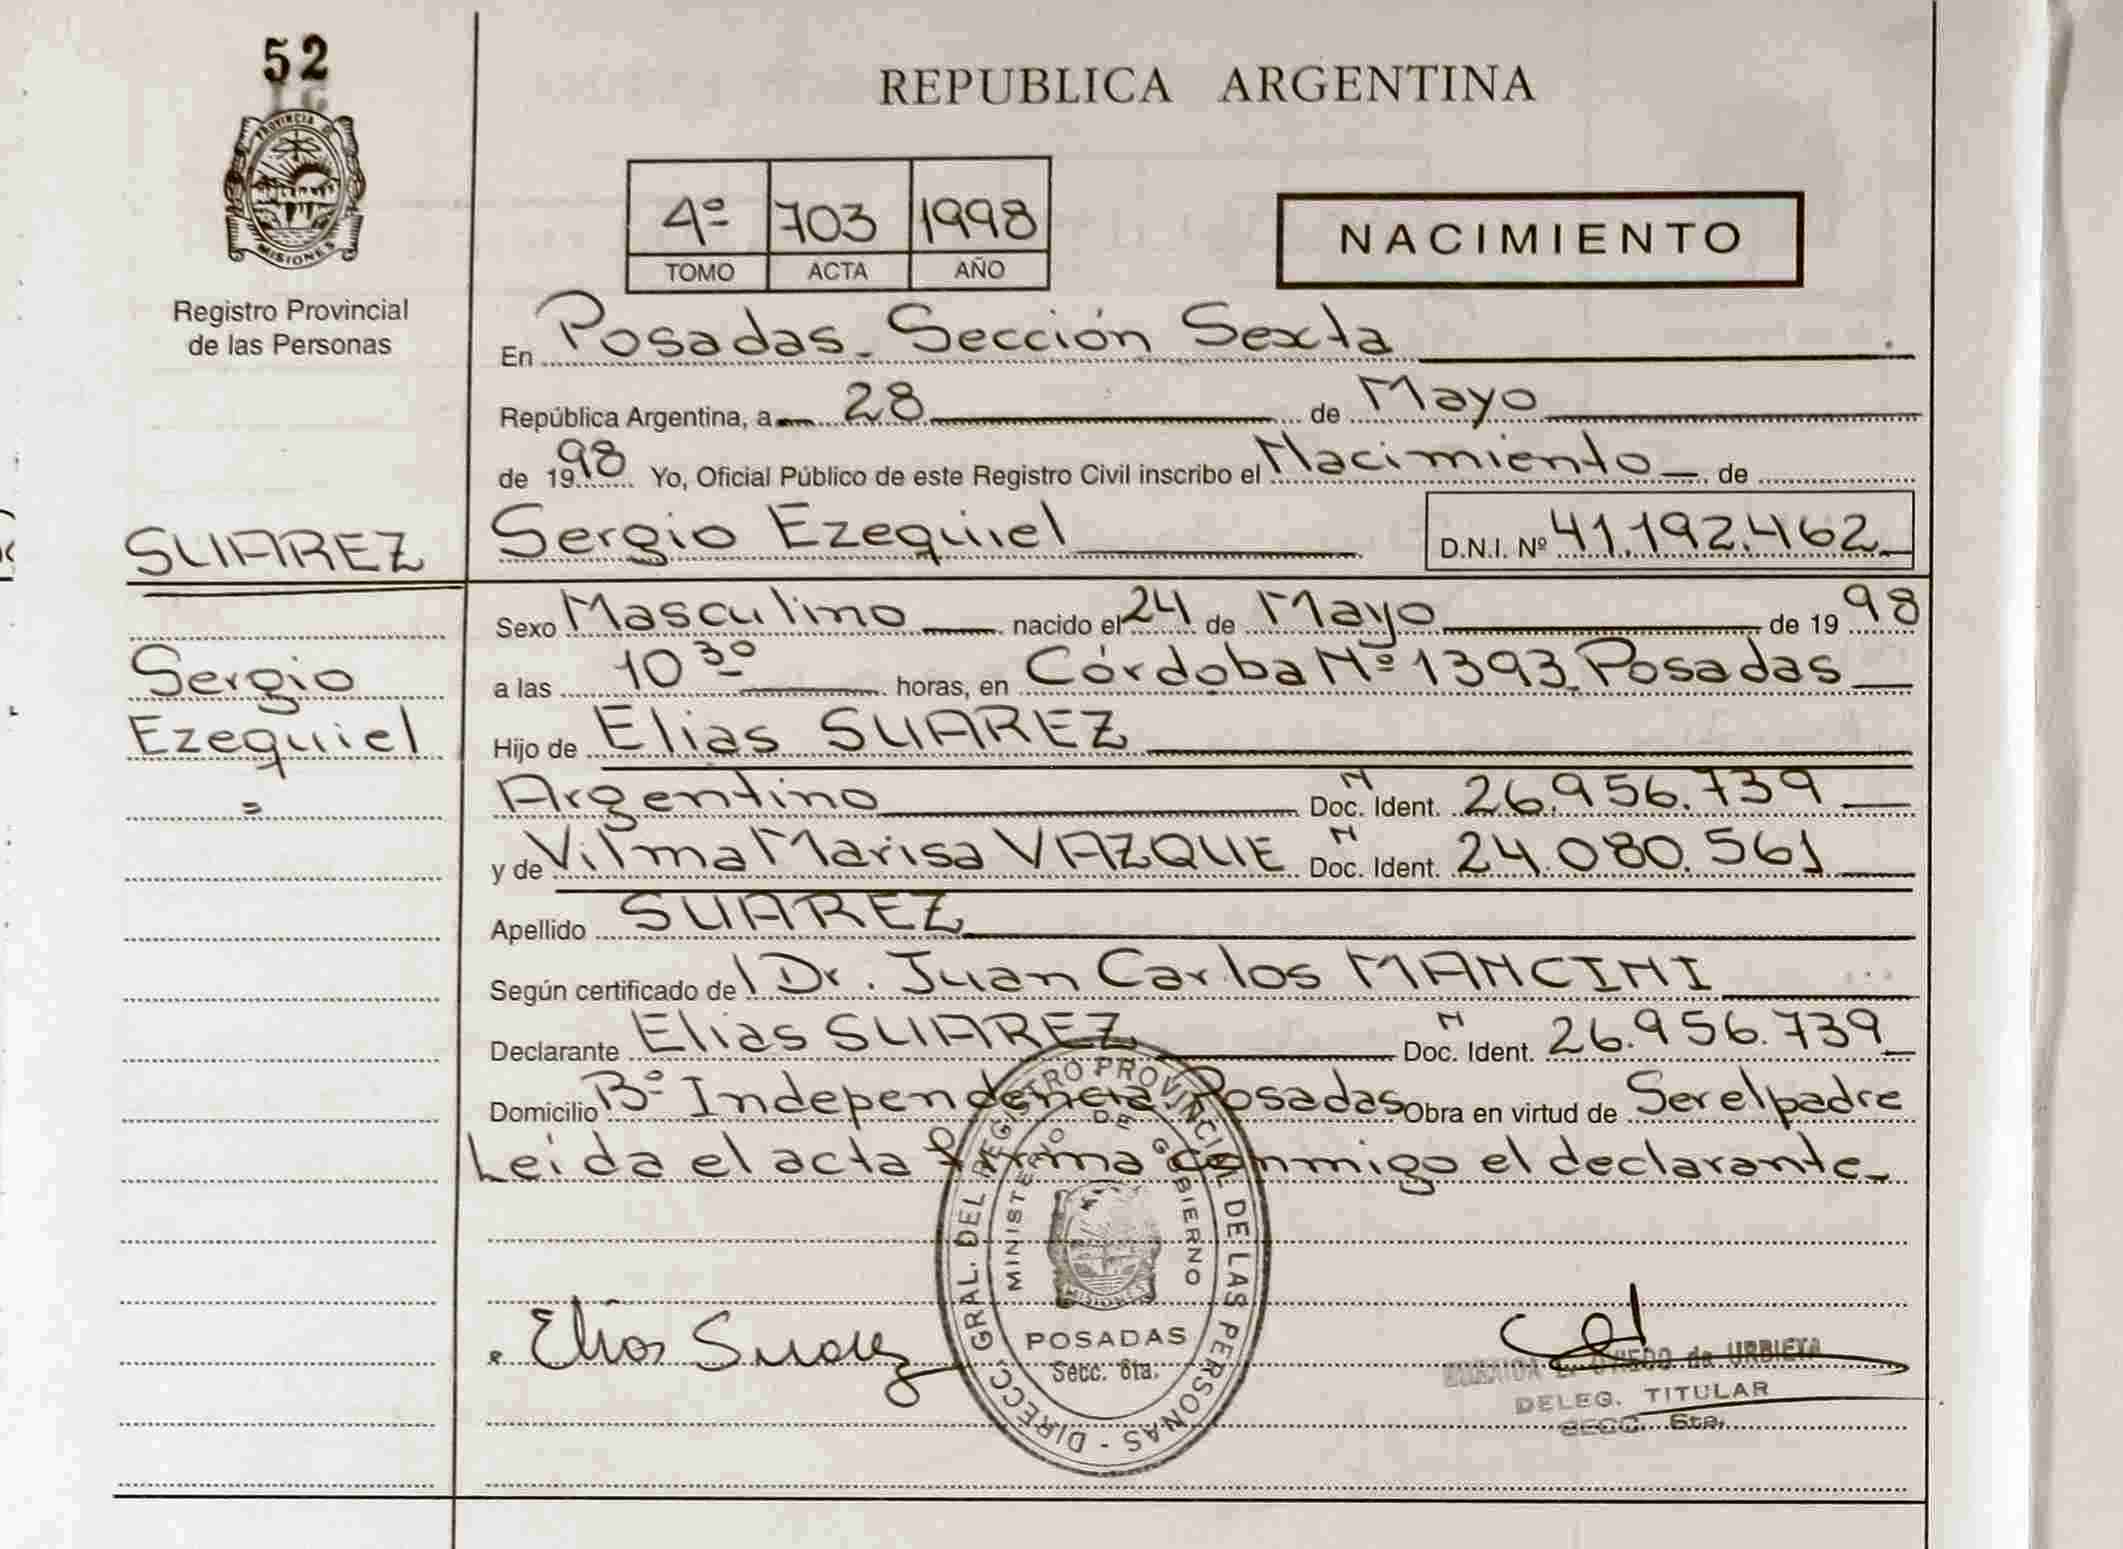 52
PROVINCIA DE
MISIONES
Registro Provincial
de las Personas
REPUBLICA ARGENTINA
4º 703 1998
TOMO ACTA AÑO
NACIMIENTO
En Posadas. Sección Sexta
República Argentina, a 28 de Mayo
de 1998 Yo, Oficial Público de este Registro Civil inscribo el Nacimiento de
SUAREZ
Sergio Ezequiel D.N.I. Nº 41.192.462
Sexo Masculino nacido el 24 de Mayo de 1998
Sergio
a las 10 30 horas, en Córdoba Nº 1393. Posadas
Ezequiel
Hijo de Elias SUAREZ
=
Argentino N Doc. Ident. 26.956.739
y de Vilma Marisa VAZQUE N Doc. Ident. 24.080.561
Apellido SUAREZ
Según certificado del Dr. Juan Carlos MANCINI
Declarante Elias SUAREZ N Doc. Ident. 26.956.739
Domicilio Bº Independencia. Posadas Obra en virtud de Ser el padre
Leida el acta firma conmigo el declarante
DIRECC. GRAL. DEL REGISTRO PROVINCIAL DE LAS PERSONAS -
MINISTERIO DE GOBIERNO
MISIONES
POSADAS
Secc. 6ta.
Elias Suarez
OVIEDO de URBIETA
DELEG. TITULAR
SECC. 6ta.